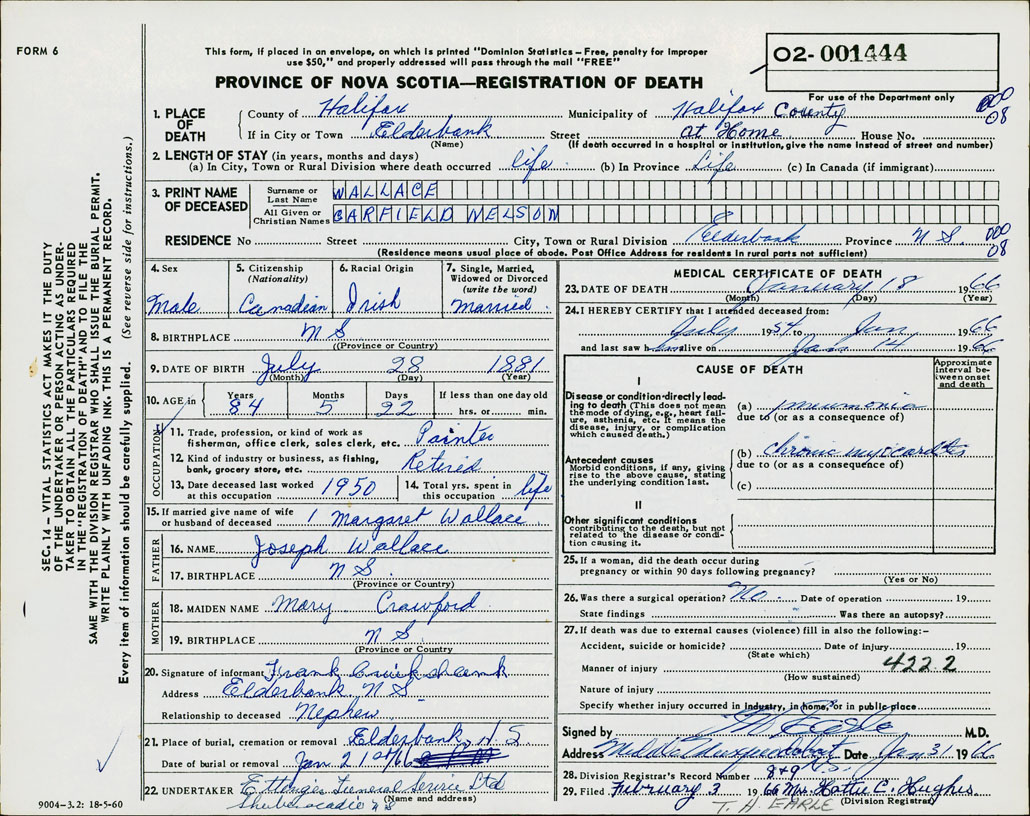 FORM 6
This form, if placed in an envelope, on which is printed "Dominion Statistics – Free, penalty for improper
use $50," and properly addressed will pass through the mail "FREE"
O2-001444
PROVINCE OF NOVA SCOTIA—REGISTRATION OF DEATH
For use of the Department only
1. PLACE OF DEATH
County of Halifax Municipality of Halifax County 000 08
If in City or Town Elderbank Street At Home House No.
(Name) (If death occurred in a hospital or institution, give the name instead of street and number)
2. LENGTH OF STAY (in years, months and days)
(a) In City, Town or Rural Division where death occurred life (b) In Province Life (c) In Canada (if immigrant)
3. PRINT NAME OF DECEASED
Surname or Last Name WALLACE
All Given or Christian Names GARFIELD NELSON
RESIDENCE No Street City, Town or Rural Division Elderbank Province N S 000 08
(Residence means usual place of abode. Post Office Address for residents in rural parts not sufficient)
4. Sex Male
5. Citizenship (Nationality) Canadian
6. Racial Origin Irish
7. Single, Married, Widowed or Divorced (write the word) Married
8. BIRTHPLACE N S
(Province or Country)
9. DATE OF BIRTH July 28 1881
(Month) (Day) (Year)
10. AGE in Years 84 Months 5 Days 22 If less than one day old hrs. or min.
OCCUPATION
11. Trade, profession, or kind of work as
fisherman, office clerk, sales clerk, etc. Painter
12. Kind of industry or business, as fishing,
bank, grocery store, etc. Retired
13. Date deceased last worked at this occupation 1950
14. Total yrs. spent in this occupation life
15. If married give name of wife
or husband of deceased Margaret Wallace
FATHER
16. NAME Joseph Wallace
17. BIRTHPLACE N S
(Province or Country)
MOTHER
18. MAIDEN NAME Mary Crawford
19. BIRTHPLACE N S
(Province or Country)
20. Signature of informant Frank Cruikshank
Address Elderbank. N S
Relationship to deceased Nephew
21. Place of burial, cremation or removal Elderbank, N. S.
Date of burial or removal Jan 21st/66
22. UNDERTAKER Ettinger Funeral Service Ltd
(Name and address)
Shubenacadie N S
9004-3.2: 18-5-60
MEDICAL CERTIFICATE OF DEATH
23. DATE OF DEATH January 18 1966
(Month) (Day) (Year)
24. I HEREBY CERTIFY that I attended deceased from:
July 1954 to Jan 1966
and last saw h alive on Jan 14 1966
CAUSE OF DEATH
Approximate interval between onset and death
I
Disease or condition directly leading
to death (This does not mean
the mode of dying, e.g., heart failure,
asthenia, etc. It means the
disease, injury, or complication
which caused death.)
(a) pneumonia
due to (or as a consequence of)
Antecedent causes
Morbid conditions, if any, giving
rise to the above cause, stating
the underlying condition last.
(b) chronic myocarditis
due to (or as a consequence of)
(c)
II
Other significant conditions
contributing to the death, but not
related to the disease or condition
causing it.
25. If a woman, did the death occur during
pregnancy or within 90 days following pregnancy?
(Yes or No)
26. Was there a surgical operation? No Date of operation 19
State findings Was there an autopsy?
27. If death was due to external causes (violence) fill in also the following:–
Accident, suicide or homicide? Date of injury 19
(State which)
Manner of injury 422 2
(How sustained)
Nature of injury
Specify whether injury occurred in industry, in home, or in public place
Signed by T H Earle M.D.
Address Middle Musquodoboit N.S. Date Jan 31 1966
28. Division Registrar's Record Number 849
29. Filed February 3 1966 Mrs. Hattie C. Hughes
(Division Registrar)
T. H. EARLE
SEC. 14 – VITAL STATISTICS ACT MAKES IT THE DUTY
OF THE UNDERTAKER OR PERSON ACTING AS UNDERTAKER
TO OBTAIN ALL THE PARTICULARS REQUIRED
IN THE "REGISTRATION OF DEATH" AND TO FILE THE
SAME WITH THE DIVISION REGISTRAR WHO SHALL ISSUE THE BURIAL PERMIT.
WRITE PLAINLY WITH UNFADING INK. THIS IS A PERMANENT RECORD.
Every item of information should be carefully supplied. (See reverse side for instructions.)